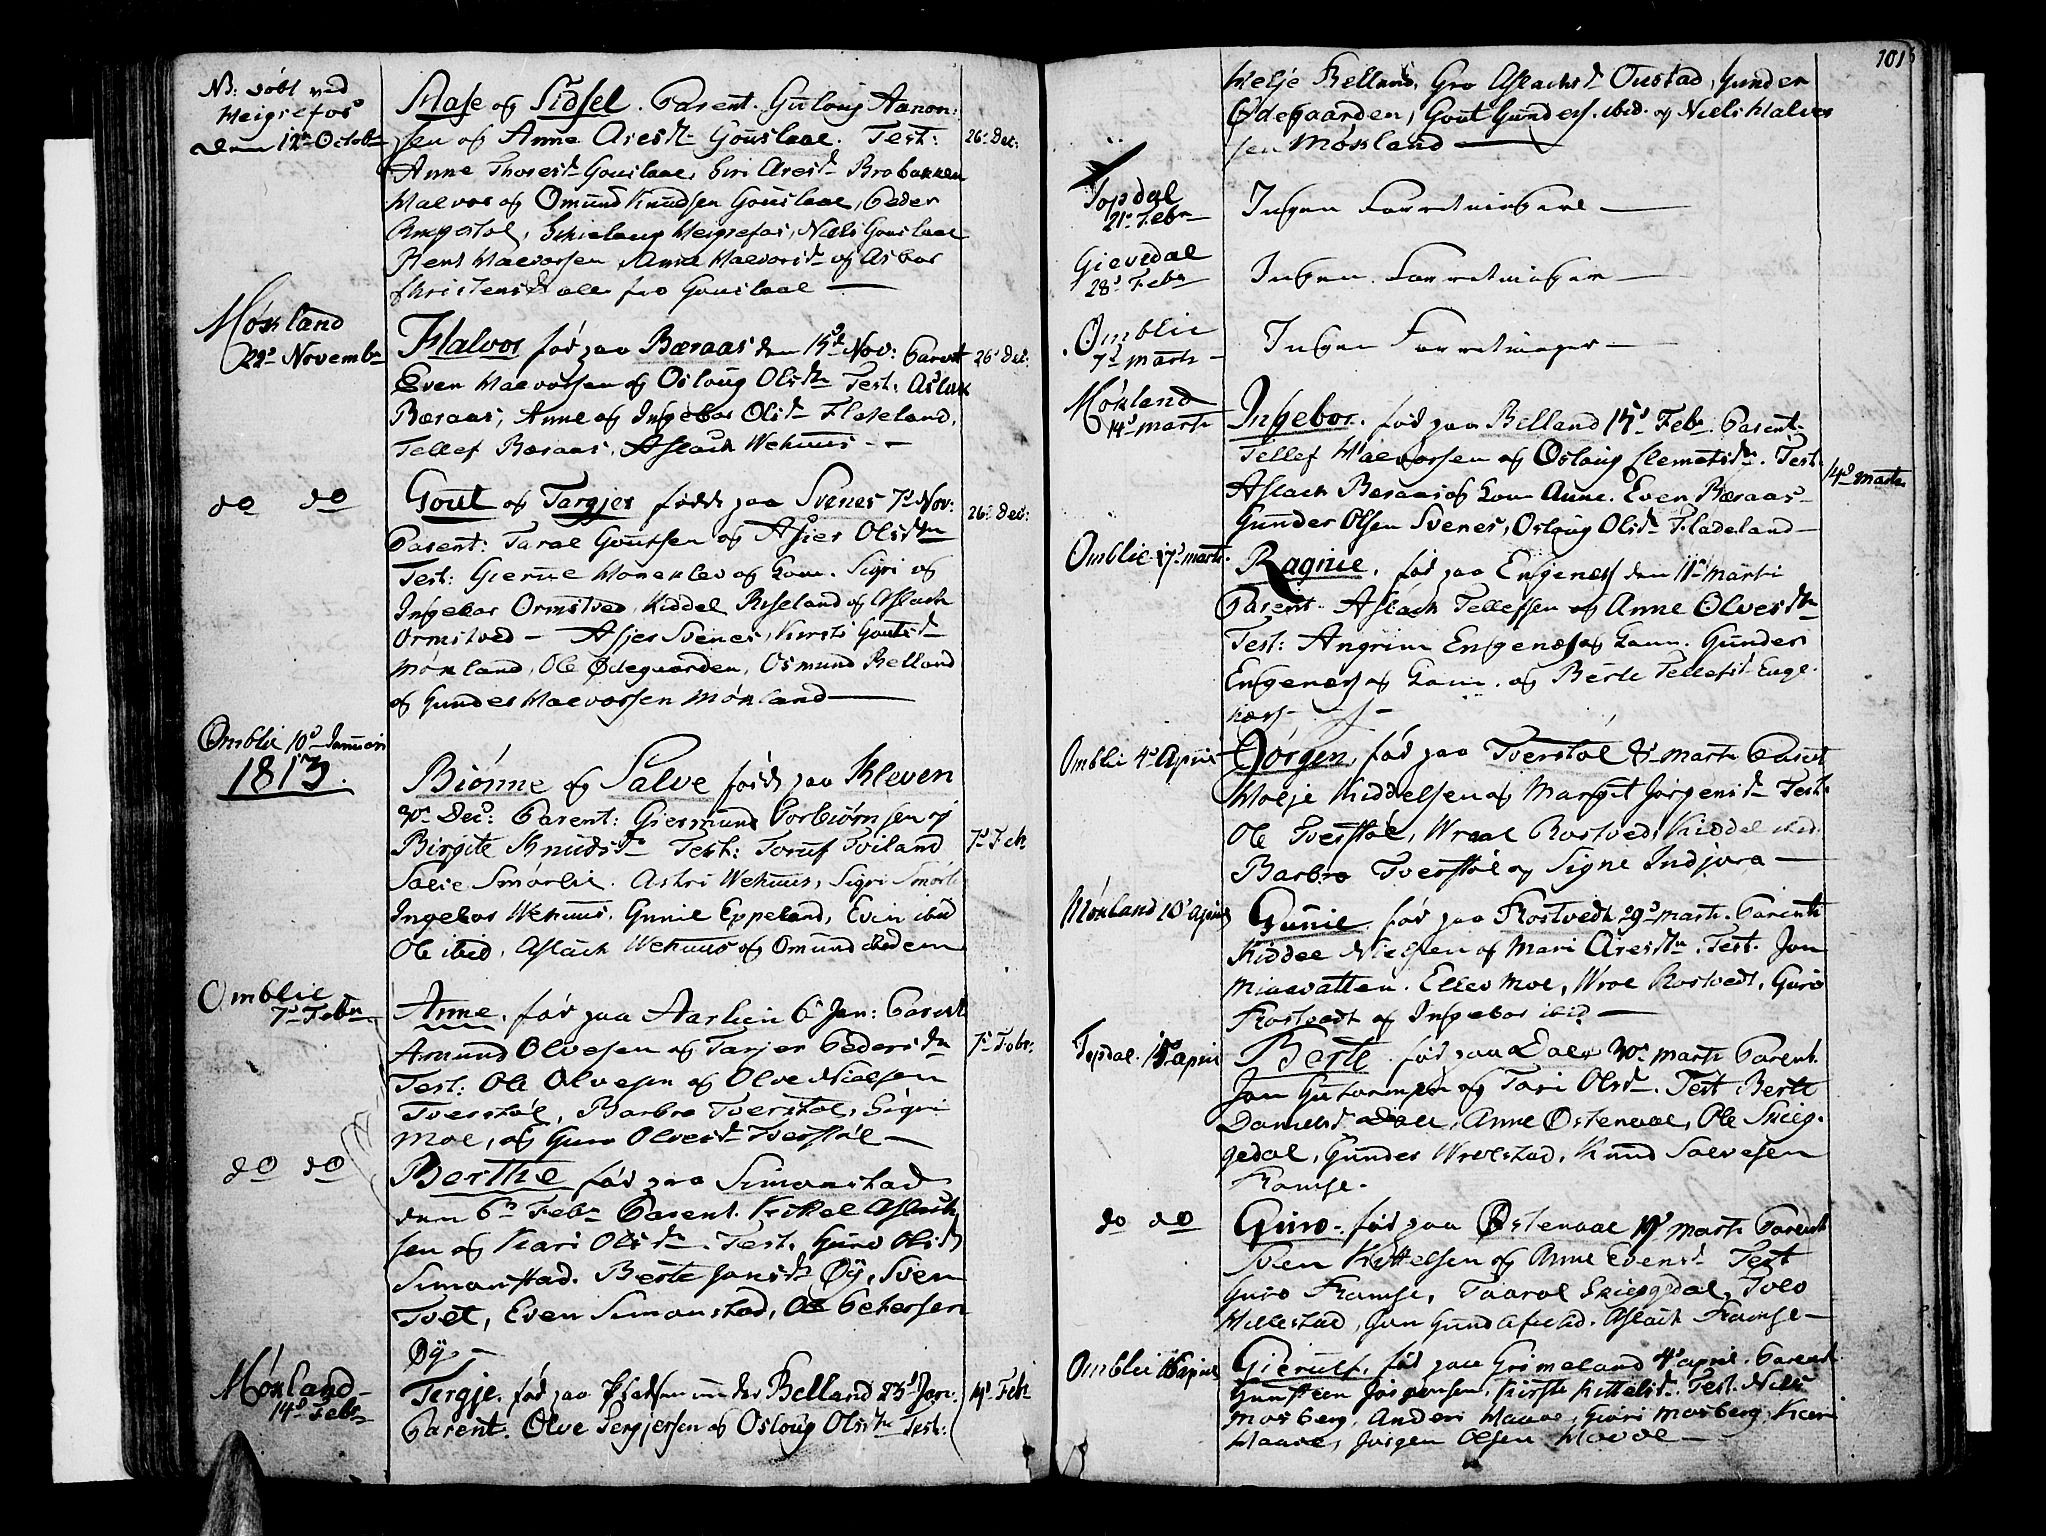 Nb: døbt ved
Heigrefos
den 12te Octob
Aase og Sidsel. Parent. Guloug Aanon:
sen og Anne Aresdr Gouslaae. Test: 26: Dec:
Anne Thoresdr Gouslaae, Siri Aresdr Brobakken
Halvor og Omund Knudsen Gouslaae, Peder
Heigrefos, Niels Gouslaae
Halvorsen, Anne Halvorsdr og Asbor
Christensdr alle fra Gouslaae —
Møkland
22d Novembr
Halvor født paa Beraas den 15d Nov: Parent 26: Dec:
Even Halvorsen og Osloug Olsdtr Test: Aslak
Beraas, Anne og Ingebor Olsdr Flateland,
Tellef Beraas, Aslach Wehuus —
do do
Gout og Targjer fødde paa Svenes 7d Nov:
26: Dec:
Parent: Taral Goutsen og Asjer Olsdtr
Test: Gierul og Kone. Sigri og
Ingebor Ormstved, Kiddel Riseland og Aslach
Ormstved — Asjer Svenes, Kirsti Goutsdr
Møkland, Ole Ødegaarden, Osmund Belland
og Gunder Halvorsen Møkland —
Omblie 10d Januari
1813.
Biønne og Salve fødde paa Kleven
30: Dec: Parent: Giermund Torbiørnsen og
Birgite Knudsdr Test: Toruf Toiland 7d Feb
Salve Smørlie. Astri Wehuus, Sigri Smørli
Ingebor Wehuus, Gunil Eppeland, Even ibid
Ole ibid, Aslach Wehuus og Omund ibidem
Omblie
7d Febr
Anne, født paa Aaslien 6d Jan: Parent
Amund Olvesen og Tarjer Pedersdr 7d Febr:
Test: Ole Olvesen og Olve Nielsen
Tverstøl, Barbro Tverstøl, Sigri
Moe, og Guro Olvesdr Tverstøl —
do do
Berthe født paa Simonstad
den 6te Febr Parent. Kittel Aslach
sen og Kari Olsdr. Test. Guro Olsdr
Simonstad. Berte Jonsdr Øy, Sven
Tvet, Even Simonstad, Ole Petersen
Øy —
Møkland
14d Febr
Tergje. født paa under Belland 23d Jan. 14d Feb
Parent. Olve Tergjersen og Osloug Olsdtr Test:
101
Helje Belland, Gro Aslachsdr Oustad, Gunder
Ødegaarden, Gout Gunders. ibid. og Niels Halvor
sen Møkland —
Topdal
21: Febr
Ingen Forretninger —
Gievedal
28d Febr
Ingen Forretninger —
Omblie
7d Marts
Ingen Forretninger —
Møkland
14d Marts
Ingebor. født paa Belland 15d Febr. Parent.
Tellef Halvorsen og Osloug Clemetsdtr. Test. 14d Marts
Aslach Beraas og Kone Anne. Even Beraas —
Gunder Olsen Svenes, Osloug Olsdr Fladeland —
Omblie 17d Marts.
Ragnie, født paa Engenes den 11te Marti
Parent. Aslach Tellefsen og Anne Olvesdtr
Test: Angrim Engenes og Kone. Gunder
Engenes og Kone. og Berte Tellefsdr Enge-
næs —
Omblie 4d April
Jørgen, født paa Tverstøl 8d Marts Parent
Helje Kiddelsen og Margit Jørgensdr Test:
Ole Tverstøl, Wraal Rostved, Kiddel ibid.
Barbro Tverstøl og Signe Indjora —
Møkland 10d April
Gunie. født paa Frostvedt 29d Marts. Parents
Kiddel Nielsen og Mari Aresdtr. Test. Jon
Miaavatten. Ellev Moe, Wroe Rostvedt, Guro
Frostvedt og Ingebor ibid —
Topdal 15d April
Berte. født paa Dale 30d Marts Parent.
Jon Guttormsen og Tori Olsdr. Test Berte
Danielsdr Dale, Anne Østenaae, Ole Skieg-
gedal, Gunder Wrelstad, Knud Salvesen
Ramse.
do do
Guro. født paa Østenaae 19d Marts Parent
Sven Kittelsen og Anne Evensdr Test
Guro Ramse, Taarol Skieggedal, Tolv
Hillestad, Jon Gundafield. Aslach Ramse —
Omblie 16 April
Gierulf. født paa Grimeland 4d April. Parent
Gunsteen Jørgensen, Kirsti Kittelsdr. Test. Niels
Mosberg, Anders Haave, Guri Mosberg, Kari
Haave, Jørgen Olsen Haave —